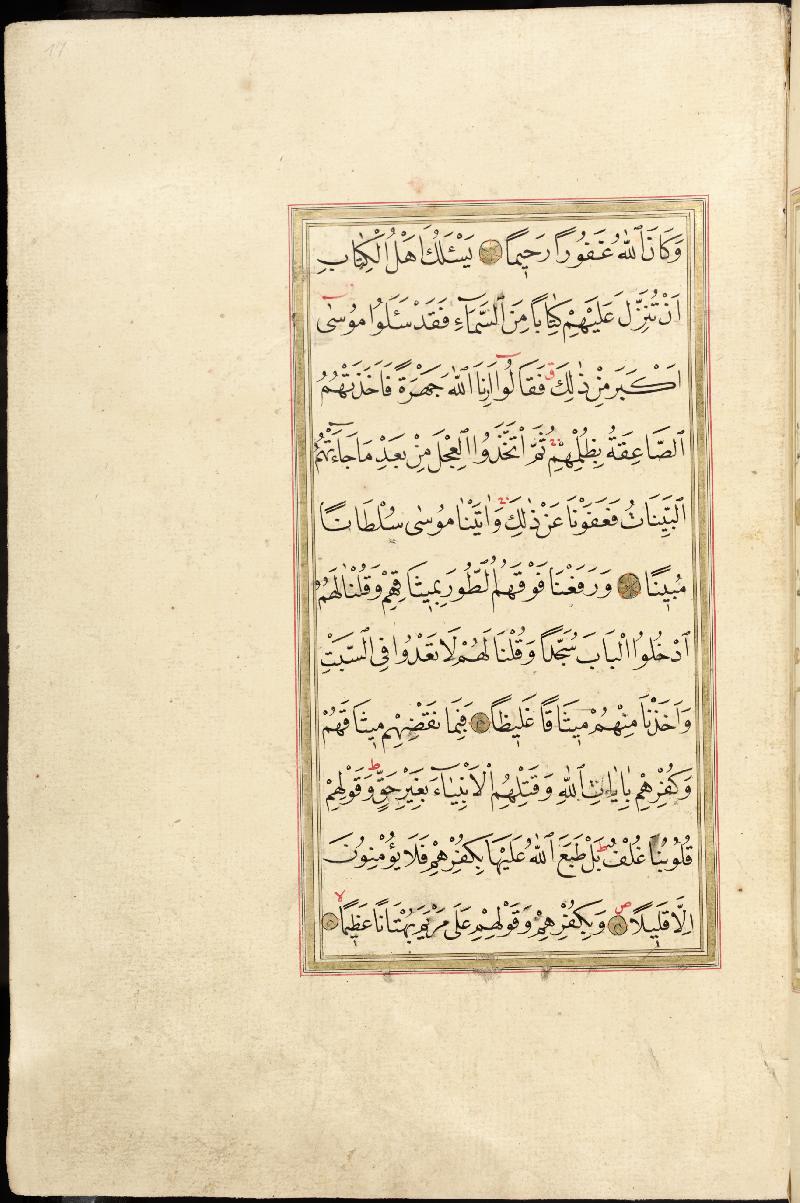 17
وَكَانَ اللّٰهُ غَفُورًا رَحِيمًا يَسْئَلُكَ اَهْلُ الْكِتَابِ
اَنْ تُنَزِّلَ عَلَيْهِمْ كِتَابًا مِنَ السَّمَاءِ فَقَدْ سَئَلُوا مُوسٰى
اَكْبَرَ مِنْ ذٰلِكَ ق فَقَالُوا اَرِنَا اللّٰهَ جَهْرَةً فَاَخَذَتْهُمُ
الصَّاعِقَةُ بِظُلْمِهِمْ ثُمَّ اتَّخَذُوا الْعِجْلَ مِنْ بَعْدِ مَا جَاءَتْهُمُ
الْبَيِّنَاتُ فَعَفَوْنَا عَنْ ذٰلِكَ وَاٰتَيْنَا مُوسٰى سُلْطَانًا
مُبِينًا وَرَفَعْنَا فَوْقَهُمُ الطُّورَ بِمِيثَاقِهِمْ وَقُلْنَا لَهُمُ
ادْخُلُوا الْبَابَ سُجَّدًا وَقُلْنَا لَهُمْ لَا تَعْدُوا فِى السَّبْتِ
وَاَخَذْنَا مِنْهُمْ مِيثَاقًا غَلِيظًا فَبِمَا نَقْضِهِمْ مِيثَاقَهُمْ
وَكُفْرِهِمْ بِاٰيَاتِ اللّٰهِ وَقَتْلِهِمُ الْاَنْبِيَاءَ بِغَيْرِ حَقٍّ ط وَقَوْلِهِمْ
قُلُوبُنَا غُلْفٌ ط بَلْ طَبَعَ اللّٰهُ عَلَيْهَا بِكُفْرِهِمْ فَلَا يُؤْمِنُونَ
اِلَّا قَلِيلًا ص وَبِكُفْرِهِمْ وَقَوْلِهِمْ عَلٰى مَرْيَمَ بُهْتَانًا عَظِيمًا لا